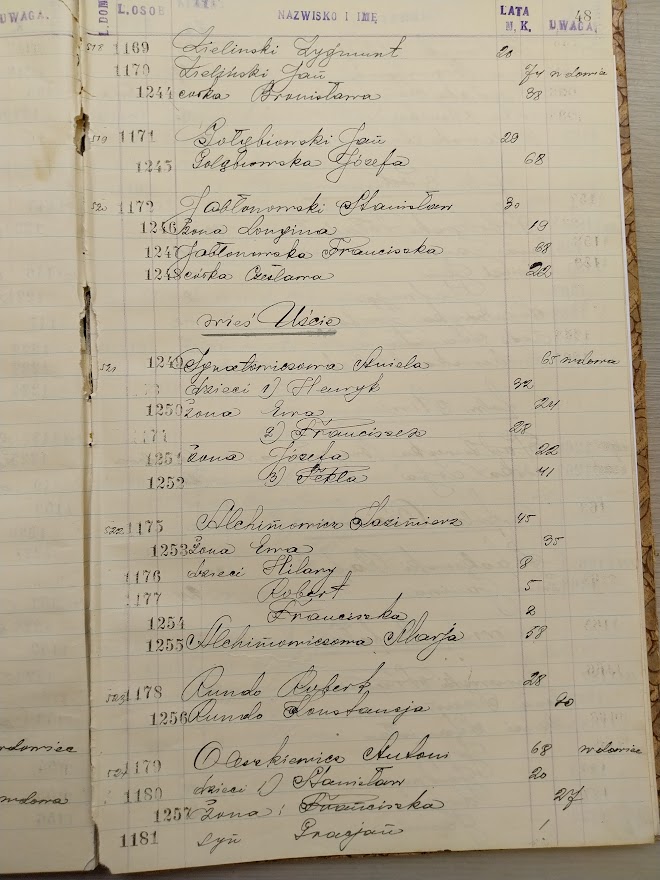 UWAGA.
L. DOM L. OSOB NAZWISKO I IMĘ LATA M. K. UWAGA. 48
518 1169 Zielinski Zygmunt 20
1170 Zieliński Jań 74 wdowiec
1244 córka Bronisława 38
519 1171 Gołębiowski Jań 29
1245 Gołębiowska Józefa 68
520 1172 Jabłonowski Stanisław 30
1246 żona Longina 19
1247 Jabłonowska Franciszka 68
1248 córka Czesława 22
wieś Uście
521 1249 Ignatowiczowa Aniela 65 wdowa
dzieci 1) Henryk 32
1250 żona Ewa 24
2) Franciszek 28
1251 żona Józefa 22
1252 3) Tekla 41
522 1175 Alchimowicz Kazimierz 45
1253 żona Ewa 35
1176 dzieci Hilary 8
1177 Robert 5
1254 Franciszka 2
1255 Alchimowiczowa Marja 58
523 1178 Rundo Robert 28
1256 Rundo Konstancja 70
524 1179 Oleszkiewicz Antoni 68 wdowiec
1180 dzieci 1) Stanisław 20
1257 żona: Franciszka 27
1181 syń 1
wdowiec
wdowa